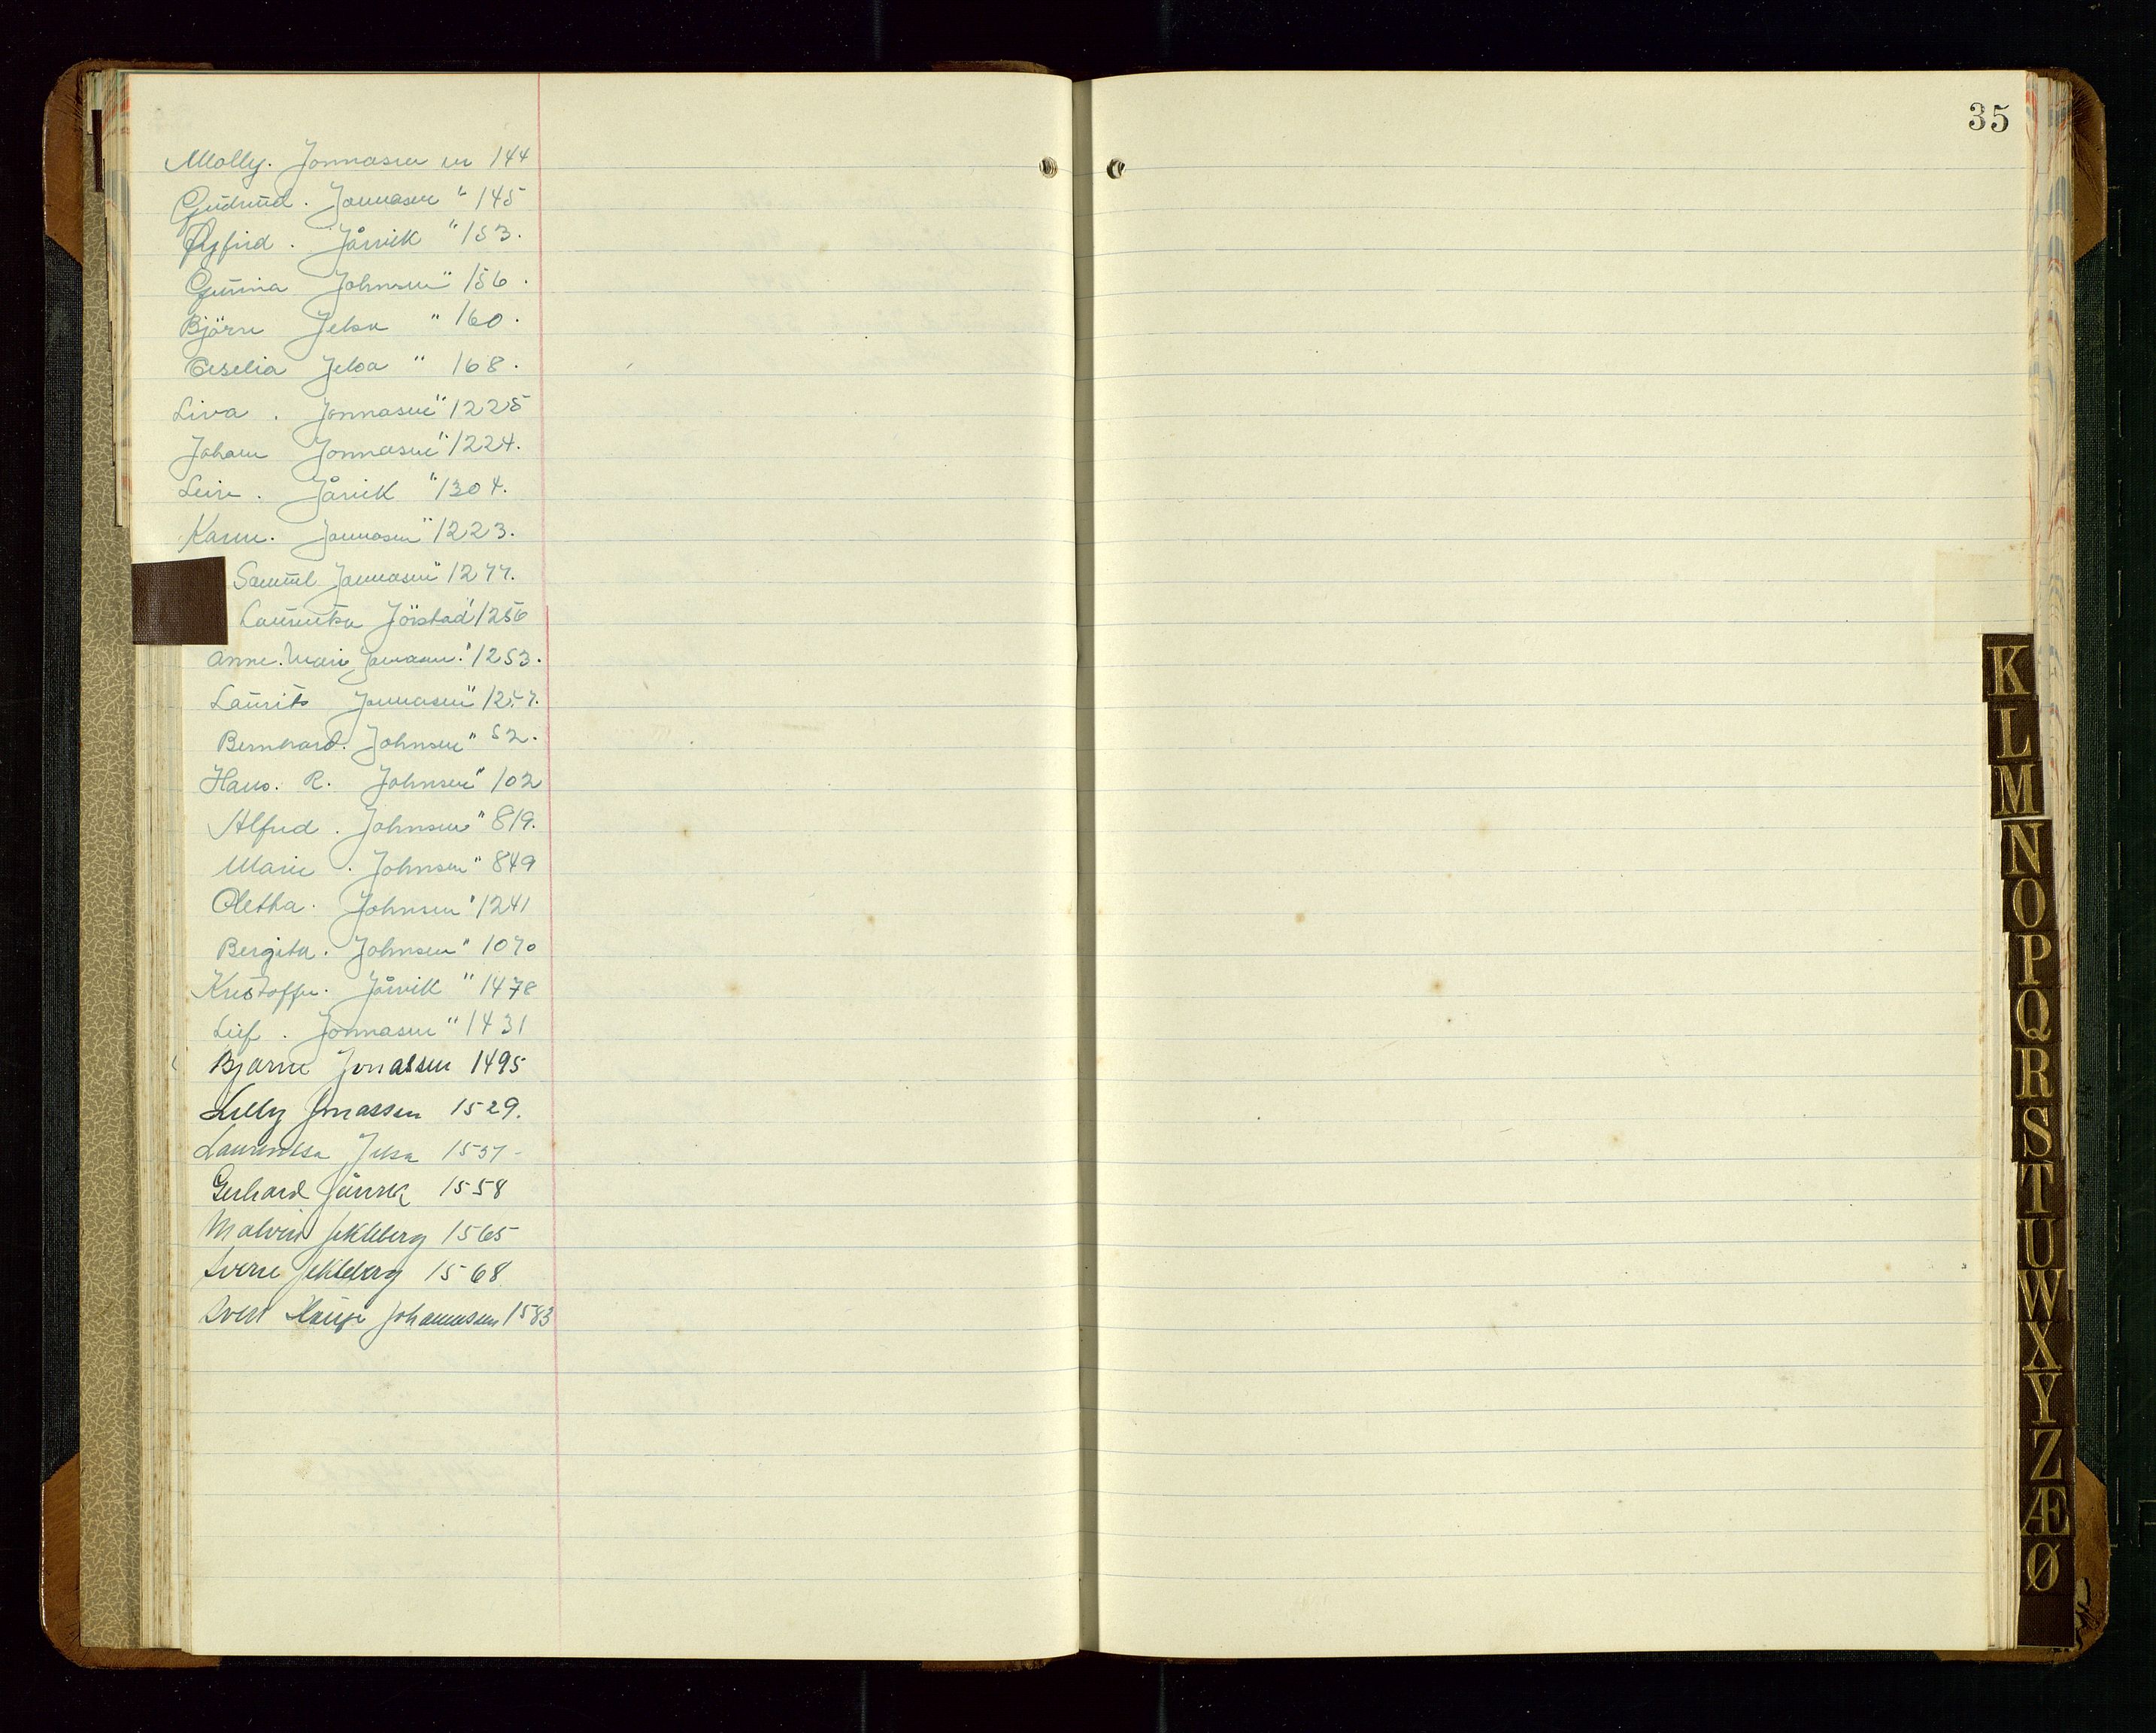 35
Molly. Jonnasen nr 144
Gudrund. Jonnasen " 145
Øyfrid. Jårvik " 153.
Gunna Johnsen " 156.
Björn Jelsa " 160.
Ceselia Jelsa " 168.
Liva. Jonnasen " 1225
Johan Jonnasen " 1224.
Leiv. Jårvik " 1304.
Karen. Jonnasen " 1223.
Samuel Jonnasen " 1277.
Laurentsa Jörstad " 1256
Anne. Marie Jonnasen. " 1253.
Laurits Jonnasen "
Bernhard. Johnsen " 52.
Hans. R. Johnsen " 102
Alfred. Johnsen " 819.
Marie. Johnsen " 849
Oletha. Johnsen " 1241
Bergita. Johnsen " 1070
Kristoffer. Jårvik " 1478
Lief. Jonnasen " 1431
Bjarne Jonassen 1495
Lilly Jonassen 1529.
Laurentsa Jelsa 1537-
Gerhard Jårvik 1558
Malvin Jekteberg 1565
Sverre Jekteberg 1568
Svein Hauge Johannesen 1583
K
L
M
N
O
P
Q
R
S
T
U
W
X
Y
Z
Æ
Ø